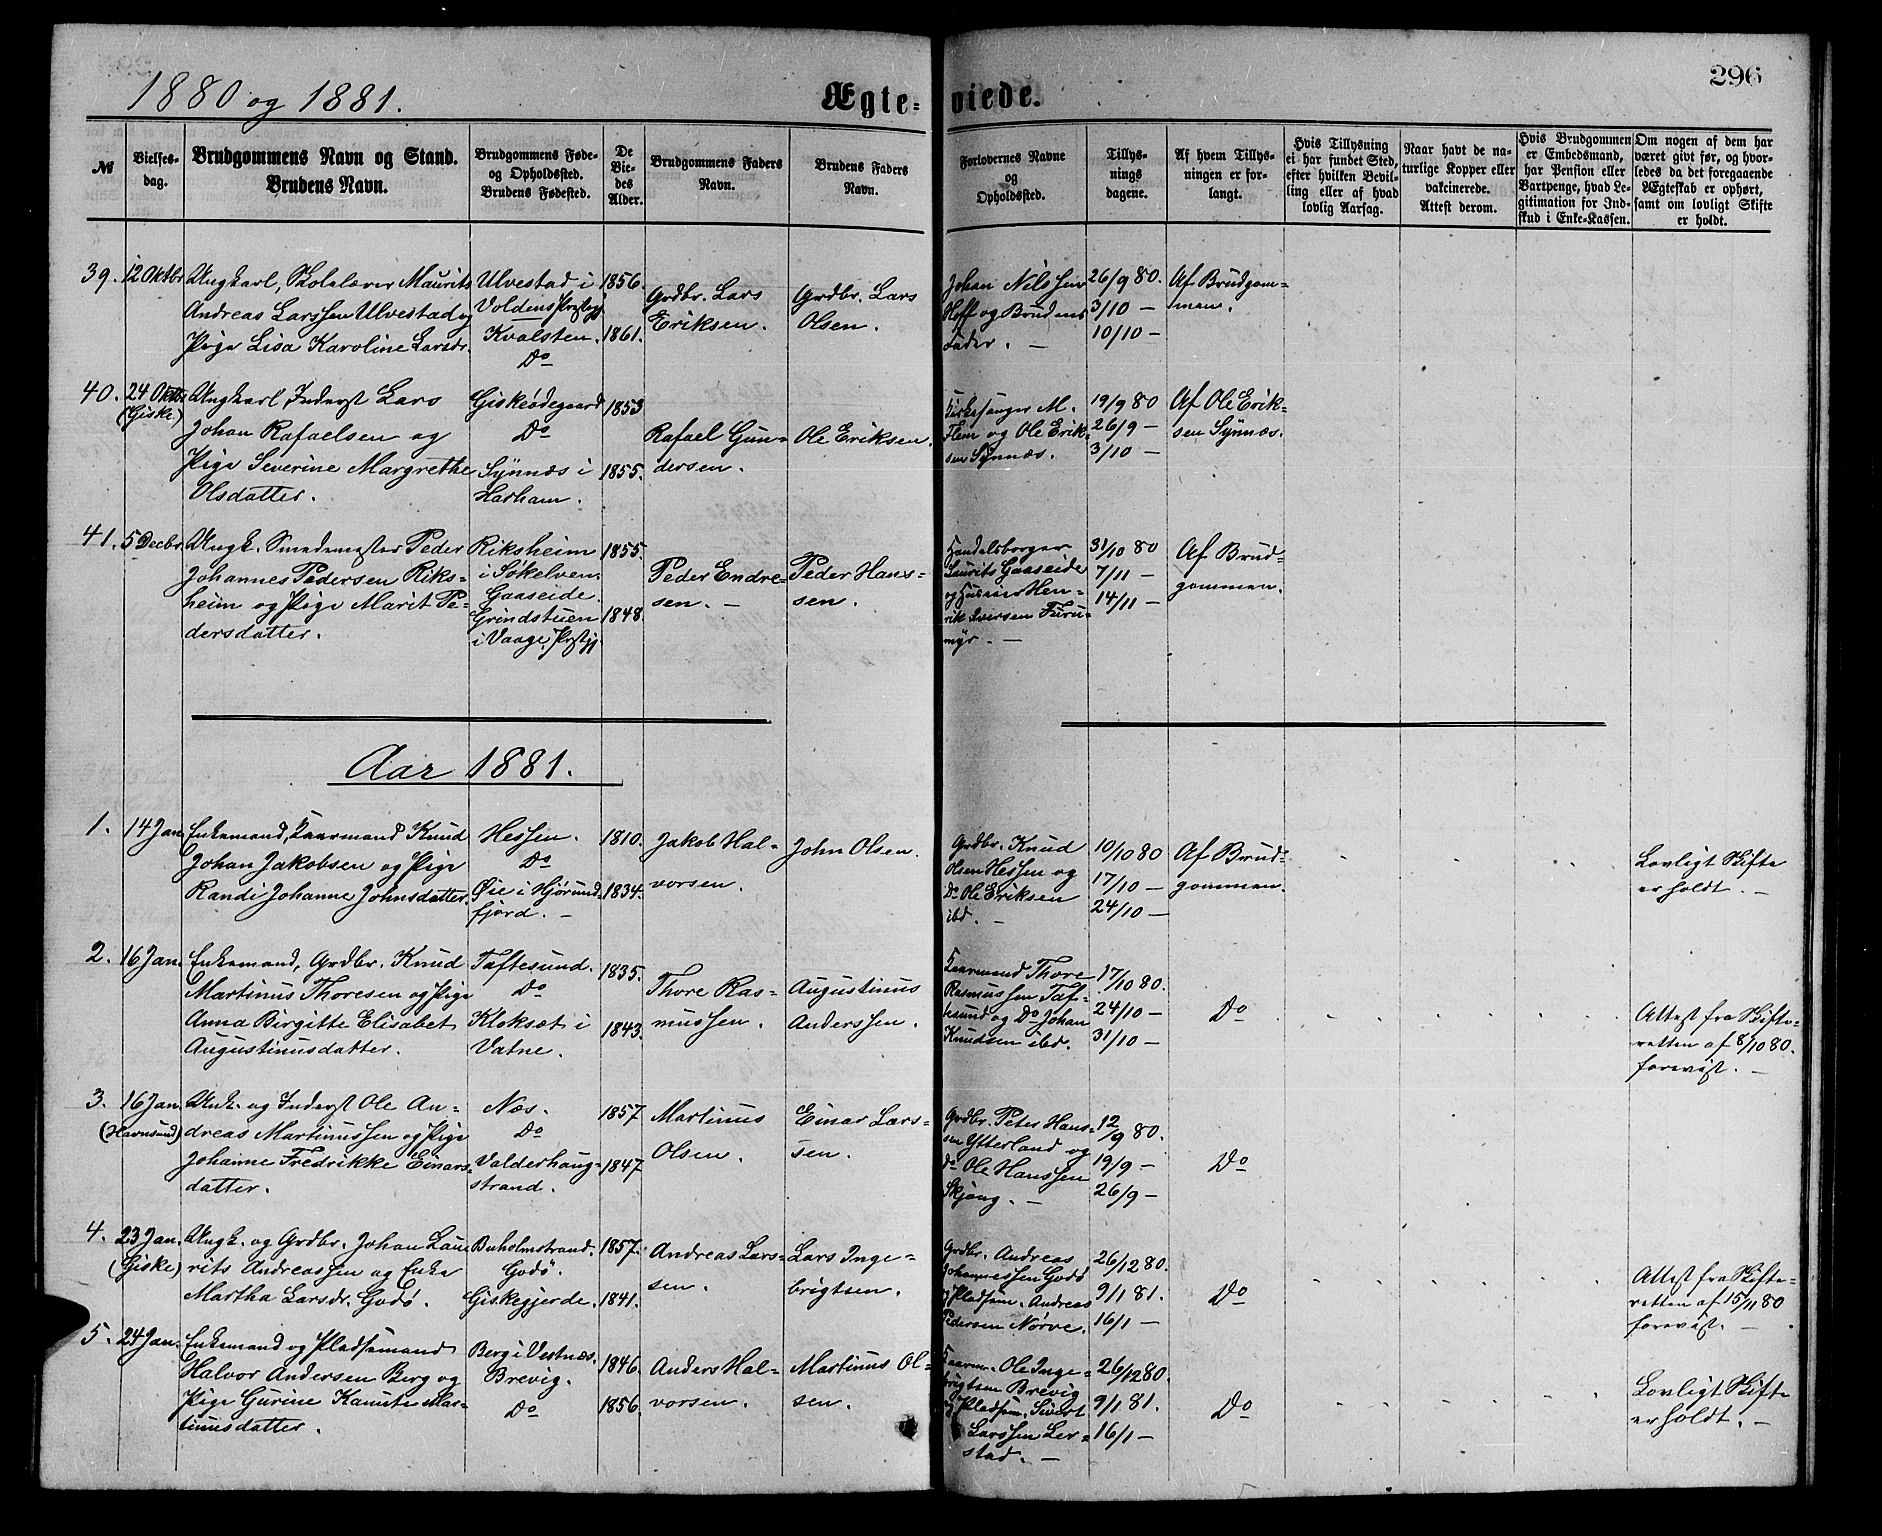 296
1880 og 1881.
Ægte-viede.
№
Vielses-
dag.
Brudgommens Navn og Stand.
Brudens Navn.
Brudgommens Føde-
og Opholdssted.
Brudens Fødested.
De
Vie-
des
Alder.
Brudgommens Faders
Navn.
Brudens Faders
Navn.
Forlovernes Navne
og
Opholdssted.
Tillys-
nings
dagene.
Af hvem Tillys-
ningen er for-
langt.
Hvis Tillysning
ei har fundet Sted,
efter hvilken Bevil-
ling eller af hvad
lovlig Aarsag.
Naar havt de na-
turlige Kopper eller
vakcinerede.
Attest derom.
Hvis Brudgommen
er Embedsmand,
har Pension eller
Vartpenge, hvad Le-
gitimation for Ind-
skud i Enke-Kassen.
Om nogen af dem har
været givt før, og hvor-
ledes da det foregaaende
Ægteskab er ophørt,
samt om lovligt Skifte
er holdt.
39.
12 Oktbr
Ungkarl, Skolelærer Maurits
Andreas Larssen Ulvestad og
Pige Lisa Karoline Larsdr.
Ulvestad i
Voldens Prstgj.
Kvalsten.
Do
1856.
1861.
Grdbr. Lars
Eriksen.
Grdbr. Lars
Olsen.
Johan Nilssen
Hoff og Brudens
Fader. —
26/9 80.
3/10 —
10/10 —
Af Brudgom-
men.
40.
24 Oktbr
(Giske)
Ungkarl, Inderst Lars
Johan Rafaelsen og
Pige Severine Margrethe
Olsdatter.
Giskeødegaard
Do
Synnæs i
Harham.
1853
1855.
Rafael Gun-
dersen.
Ole Eriksen.
Kirkesanger M.
Flem og Ole Erik-
sen Synnæs.
19/9 80
26/9 —
3/10 —
Af Ole Erik-
sen Synnæs.
41.
5 Decbr.
Ungk. Smedemester Peder
Johannes Pedersen Riks-
heim og Pige Marit Pe-
dersdatter.
Riksheim
i Søkelven.
Gaaseide.
Grindstuen
i Vaage Prstgj.
1855.
1848.
Peder Endre-
sen. —
Peder Hans-
sen.
Handelsborger
Laurits Gaaseide
og Husmer Hen-
rik Iversen Furu-
myr. —
31/10 80
7/11 —
14/11 —
Af Brud-
gommen.
Aar 1881.
1.
14 Jan
Enkemand, Kaarmand Knud
Johan Jakobsen og Pige
Randi Johanne Johnsdatter.
Hessen.
Do
Øie i Hjørund-
fjord. —
1810.
1834.
Jakob Hal-
vorsen.
John Olsen.
Grdbr. Knud
Olsen Hessen og
Do Ole Eriksen
ibd. —
10/10 80
17/10 —
24/10 —
Af Brud-
gommen.
Lovligt Skifte
er holdt. —
2.
16 Jan.
Enkemand, Grdbr. Knud
Martinus Thoresen og Pige
Anna Birgitte Elisabet
Augustinusdatter.
Taftesund.
Do
Kloksæt i
Vatne.
1835.
1843.
Thore Ras-
mussen.
Augustinus
Anderssen.
Kaarmand Thore
Rasmussen Taf-
tesund og Do Johan
Knudsen ibd.
17/10 80.
24/10 —
31/10 —
Do
Attest fra Skifte-
retten af 8/10 80.
forevist. —
3.
16 Jan.
(Havnsund)
Unk. og Inderst Ole An-
dreas Martinussen og Pige
Johanne Fredrikke Einars-
datter.
Næs.
Do
Valderhaug-
strand.
1857
1847
Martinus
Olsen.
Einar Lars-
sen.
Grdbr. Peter Hans-
sen Ytterland og
Do Ole Hanssen
Skjong. —
12/9 80.
19/9 —
26/9 —
Do
4.
23 Jan.
(Giske)
Ungk. og Grdbr. Johan Lau
rits Andreassen og Enke
Martha Larsdr. Godø.
Buholmstrand.
Godø.
Giskegjerde.
1857.
1841.
Andreas Lars-
sen.
Lars Inge-
brigtsen.
Grdbr. Andreas
Johannessen Godø
og Pladsm. Andreas
Pedersen Nørve.
26/12 80.
9/1 81.
16/1 —
Do
Attest fra Skifte-
retten af 15/11 80
forevist. —
5.
24 Jan.
Enkemand og Pladsemand
Halvor Andersen Berg og
Pige Gurine Kanute Mar-
tinusdatter.
Berg i Vestnæs.
Brevig.
Do
1846.
1856.
Anders Hal-
vorsen.
Martinus Ol-
sen.
Kaarm. Ole Inge-
brigtsen Brevig
og Pladsm. Sivert
Larssen Ler-
stad. —
26/12 80.
9/1 81.
16/1 —
Do
Lovligt Skifte
er holdt. —